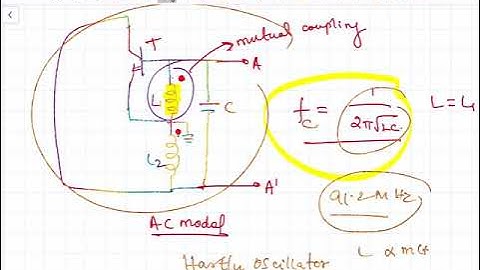 mutual coupling
T
A
L
C
L2
A'
AC model
fc = 1 / 2π√LC
L = L1
91.2 MHz
Hartly Oscillator